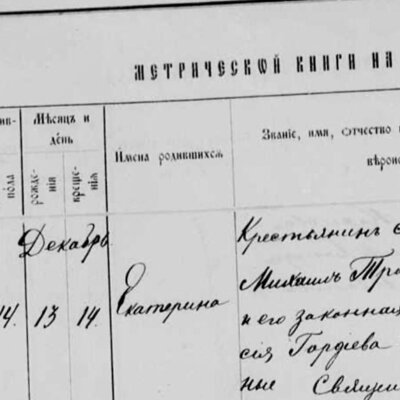 МЕТРИЧЕСКОЙ КНИГИ НА
Мѣсяцъ и
день
рожде-
нія
креще-
нія
пола
Имена родившихся
Званіе, имя, отчество
вѣроис
Декабрь
14. 13 14. Екатерина
Крестьянин
Михаилъ
и его законная
сія Гордіева
ные